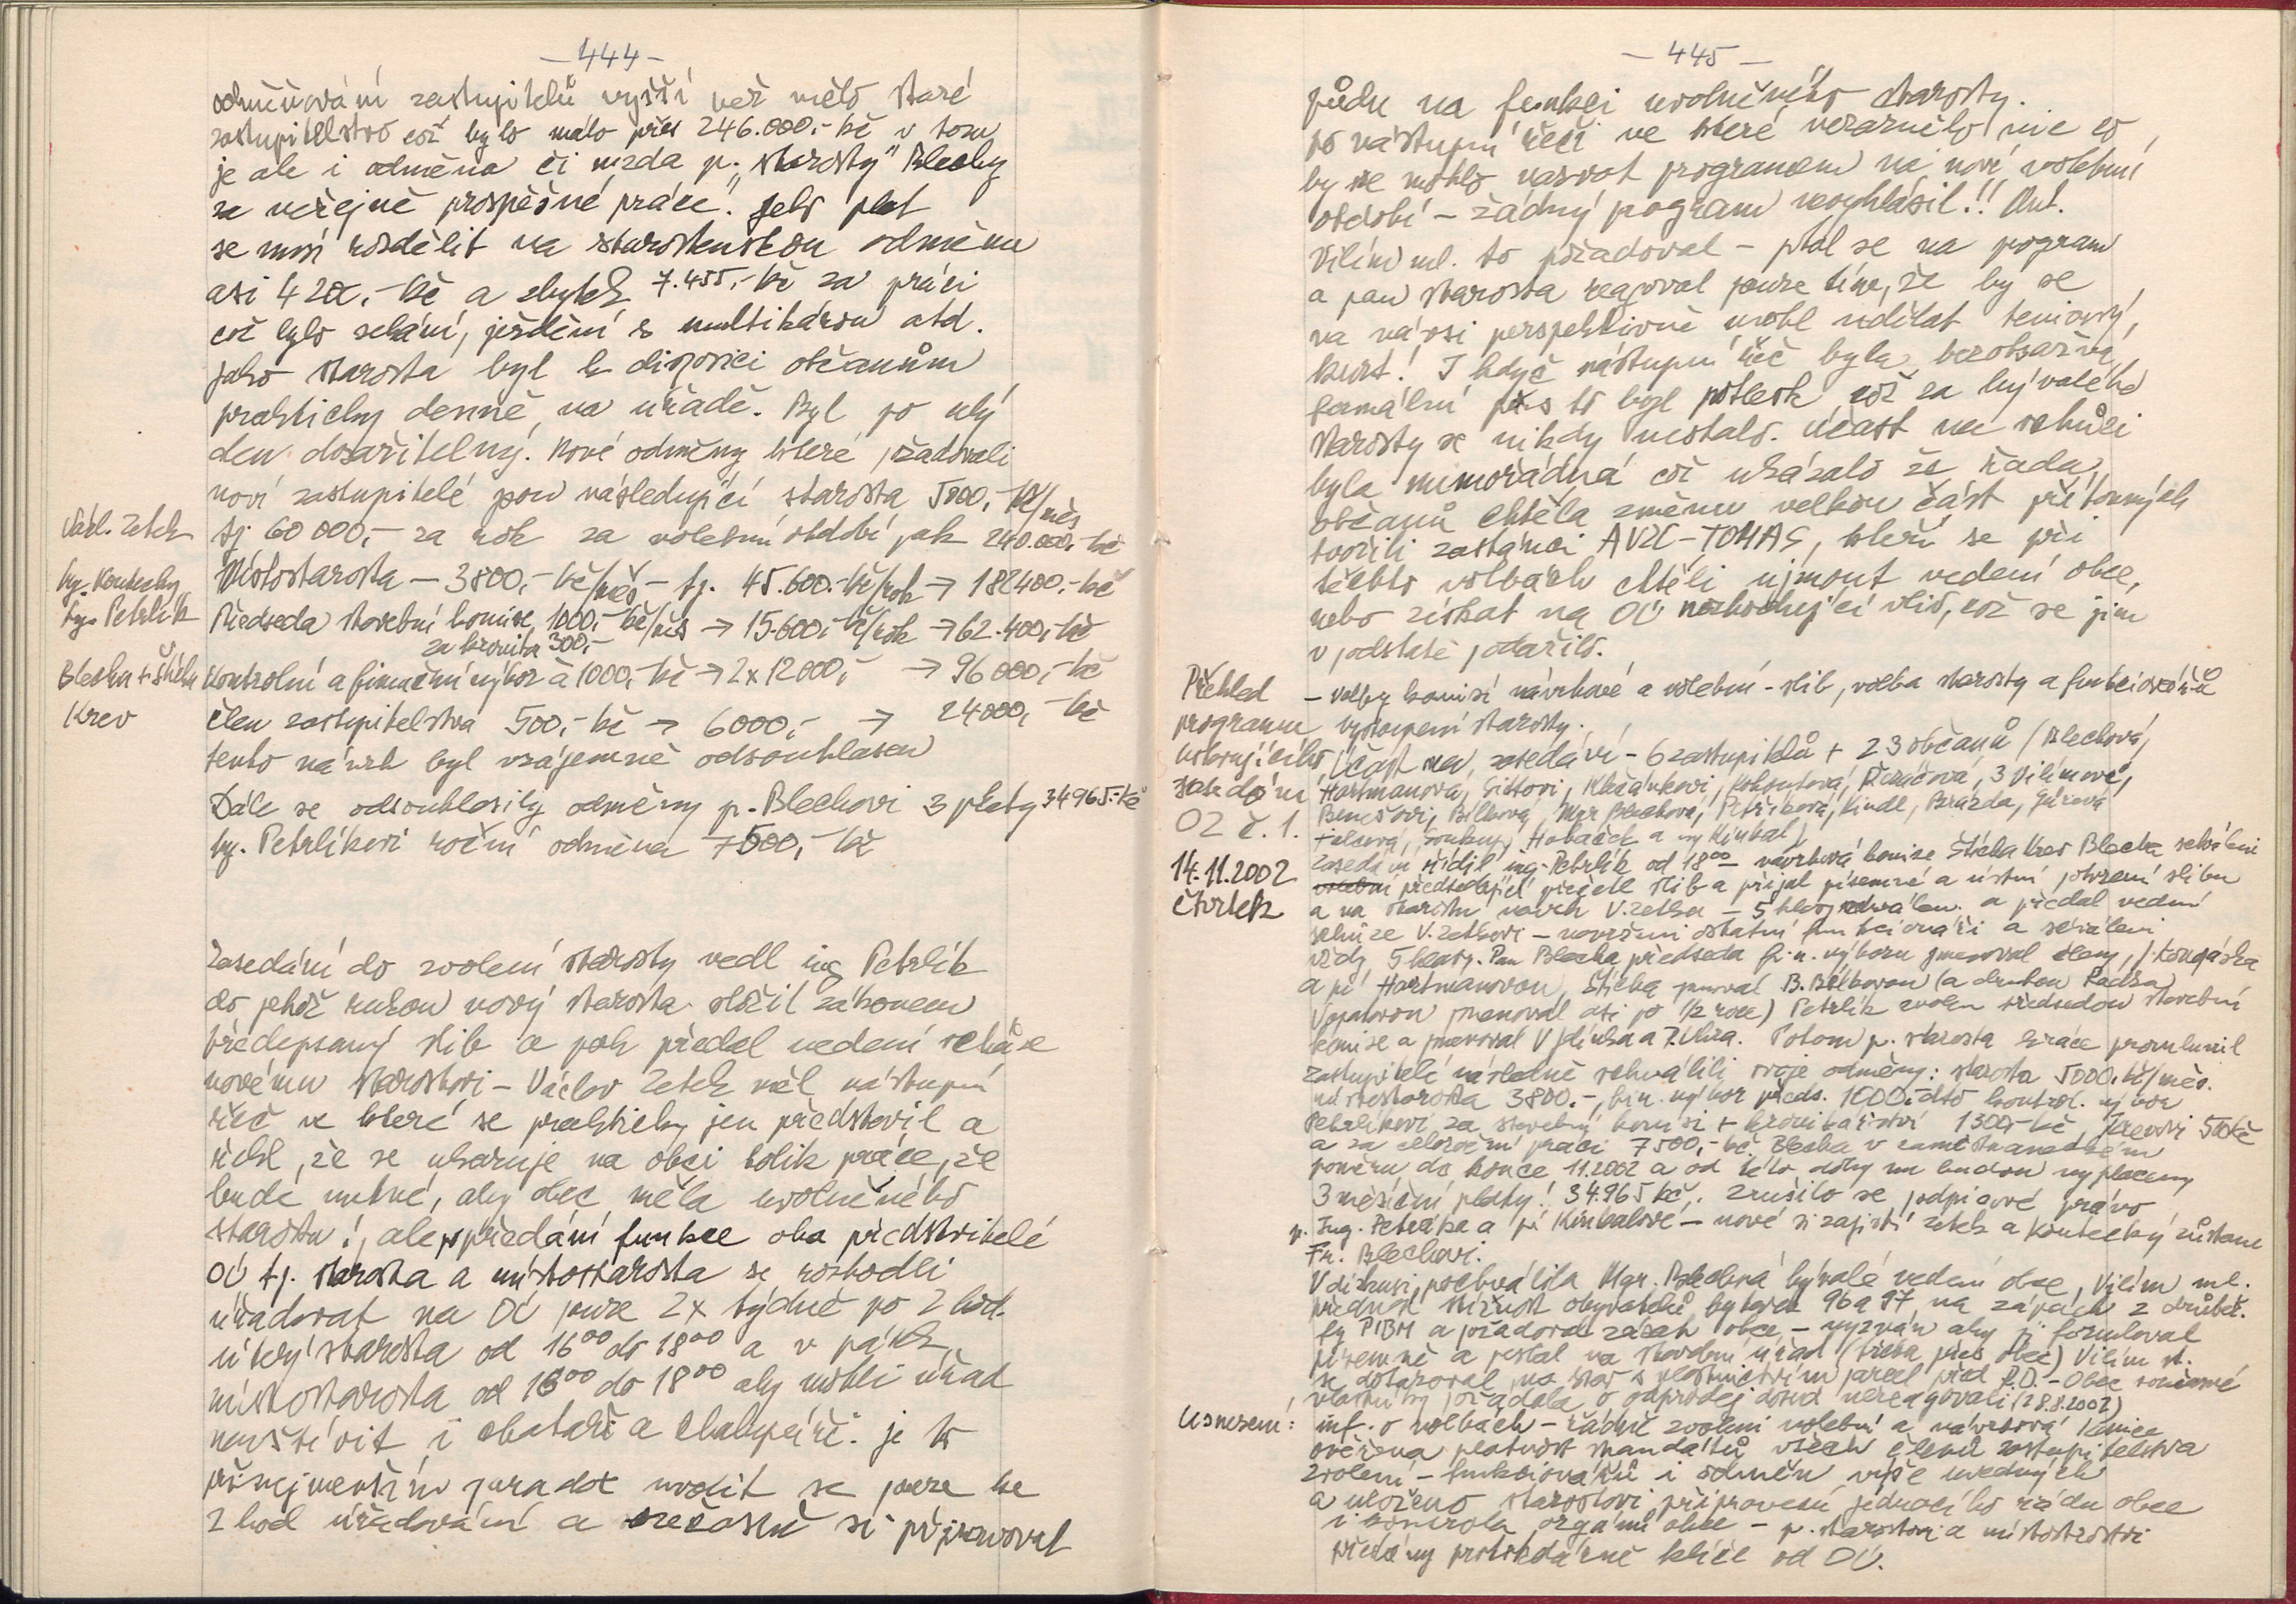 — 444 —
odměňování zastupitelů vyšší než mělo staré
zastupitelstvo což bylo málo přes 246.000.- Kč v tom
je ale i odměna či mzda p. „starosty" Blechy
za veřejně prospěšné práce! Jeho plat
se musí rozdělit na starostenskou odměnu
asi 420.- Kč a zbytek 7.455,- Kč za práci
což bylo sekání, ježdění s multikárou atd.
Jako starosta byl k dispozici občanům
prakticky denně, na úřadě. Byl po celý
den dosažitelný. Nové odměny které požadovali
noví zastupitelé jsou následující starosta 5000,- Kč/měs
Václ. Zetek tj 60 000,- za rok za volební období pak 240.000,- Kč
Ing. Koutecký Místostarosta — 3800,- Kč/měs — tj. 45.600.- Kč/rok → 182400.- Kč
Ing. Petrlík Předseda stavební komise 1000,- Kč/měs → 15.600,- Kč/rok → 62.400,- Kč
za kronika 300,-
Blecha + Štícha Kontrolní a finanční výbor à 1000,- Kč → 2 x 12 000,- → 96 000,- Kč
Krev člen zastupitelstva 500,- Kč → 6000,- → 24000,- Kč
tento návrh byl vzájemně odsouhlasen
Dále se odsouhlasily odměny p. Blechovi 3 platy 34965.- Kč
Ing. Petrlíkovi roční odměna 7500,- Kč
Zasedání do zvolení starosty vedl ing Petrlík
do jehož rukou nový starosta složil zákonem
předepsaný slib a pak předal vedení schůze
novému starostovi – Václav Zetek měl nástupní
řeč ve které se prakticky jen představil a
řekl, že se ukazuje na obci tolik práce, že
bude nutné, aby obec měla uvolněného
starostu!, ale po předání funkce oba představitelé
OÚ tj. starosta a místostarosta se rozhodli
úřadovat na OÚ pouze 2x týdně po 2 hod.
úterý starosta od 16⁰⁰ do 18⁰⁰ a v pátek
místostarosta od 16⁰⁰ do 18⁰⁰ aby mohli úřad
navštívit i chataři a chalupáři. je to
přinejmenším paradox uvolit se pouze ke
2 hod úřadování a současně si připravovat
— 445 —
půdu na funkci uvolněného starosty.
Po nástupní řeči ve které nezaznělo nic co
by se mohlo nazvat programem na nové volební
období – žádný program nevyhlásil!! Ant.
Vilím ml. to požadoval – ptal se na program
a pan starosta reagoval pouze tím, že by se
na návsi perspektivně mohl udělat tenisový
kurt! I když nástupní řeč byla bezobsažná,
formální přes to byl potlesk což za bývalého
starosty se nikdy nestalo. Účast na schůzi
byla mimořádná což ukázalo že řada
občanů chtěla změnu velkou část přítomných
tvořili zastánci AVZC-TOMAS, kteří se při
těchto volbách chtěli ujmout vedení obce,
nebo získat na OÚ rozhodující vliv, což se jim
v podstatě podařilo.
Přehled – volby komisí návrhové a volební - slib, volba starosty a funkcionářů
programu vystoupení starosty.
ustavujícího Účast na zasedání – 6 zastupitelů + 23 občanů / Blechová,
zasedání Hartmanová, Křežánkovi, Kohoutová, Řezáčová, 3 Vilímové,
OZ č. 1. Benešovi, Bílková, Mgr Blechová, Petříková, Kindl, Brázda,
Soukup, Hobáček a Kimbal)
14.11.2002 Zasedání řídil ing. Petrlík od 18⁰⁰ návrhová komise Štícha Krev Blecha schváleni
čtvrtek předsedající přečetl slib a přijal písemné a ústní potvrzení slibu
a na starostu návrh V. Zetka – 5 hlasy schválen. a předal vedení
schůze V. Zetkovi – navrženi ostatní funkcionáři a schváleni
vždy 5 hlasy. Pan Blecha předseda fin. výboru jmenoval členy
a pí Hartmanovou, Štícha jmenoval B. Bílkovou (a druhou Radka
jmenoval asi po 1/2 roce) Petrlík zvolen předsedou stavební
komise a jmenoval V Jdinka a P. Uhra. Potom p. starosta krátce promluvil
zastupitelé následně schválili svoje odměny: starosta 5000.- Kč/měs.
místostarosta 3800.-, fin. výbor předs. 1000,- dto kontrol. výbor
Petrlíkovi za stavební komisi + kronikářství 1300,- Kč, Krevovi 500 Kč
a za celoroční práci 7500,- Kč. Blecha v zaměstnaneckém
poměru do konce 11.2002 a od této doby mu budou vyplaceny
3 měsíční platy! 34.965 Kč. Zrušilo se podpisové právo
p. Ing. Petrlíka a pí Kimbalové – nové si zajistí Zetek a Koutecký zůstane
Fr. Blechovi.
V diskusi pochválila Mgr. Blechová bývalé vedení obce, Vilím ml.
přednesl stížnost obyvatelů bytovek 96 a 97 na zápach z drůbež.
fy PIBM a požadoval zásah obce – vyzván aby ji formuloval
písemně a poslal na stavební úřad (třeba přes obec) Vilím st.
se dotazoval na stav s vlastnictvím parcel před R.D. – Obec současné
vlastníky požádala o odprodej dosud nereagovali (28.8.2002)
Usnesení: inf. o volbách – řádně zvoleni volební a návrhová komise
ověřena platnost mandátů všech členů zastupitelstva
zvolení – funkcionářů i odměn výše uvedených
a uloženo starostovi připravení jednacího řádu obce
i kontrola orgánů obce – p. starostovi a místostarostovi
předány protokolárně klíče od OÚ.